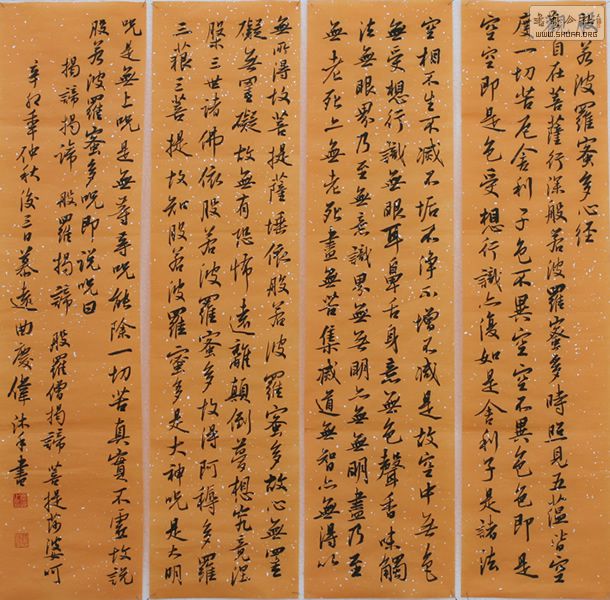 般若波羅蜜多心经
觀自在菩薩行深般若波羅蜜多時照見五蕴皆空
度一切苦厄舍利子色不異空空不異色色即是
空空即是色受想行識亦復如是舍利子是諸法
空相不生不滅不垢不淨不增不減是故空中無色
無受想行識無眼耳鼻舌身意無色聲香味觸
法無眼界乃至無意識界無無明亦無無明盡乃至
無老死亦無老死盡無苦集滅道無智亦無得以
無所得故菩提薩埵依般若波羅蜜多故心無罣
礙無罣礙故無有恐怖遠離顛倒夢想究竟涅
槃三世諸佛依般若波羅蜜多故得阿耨多羅
三藐三菩提故知般若波羅蜜多是大神咒是大明
咒是無上咒是無等等咒能除一切苦真實不虛故説
般若波羅蜜多咒即説咒曰
揭諦揭諦 般羅揭諦 般羅僧揭諦 菩提薩婆訶
辛卯年仲秋後三日慕遠曲慶偉沐手書
WWW.SHUFA.ORG